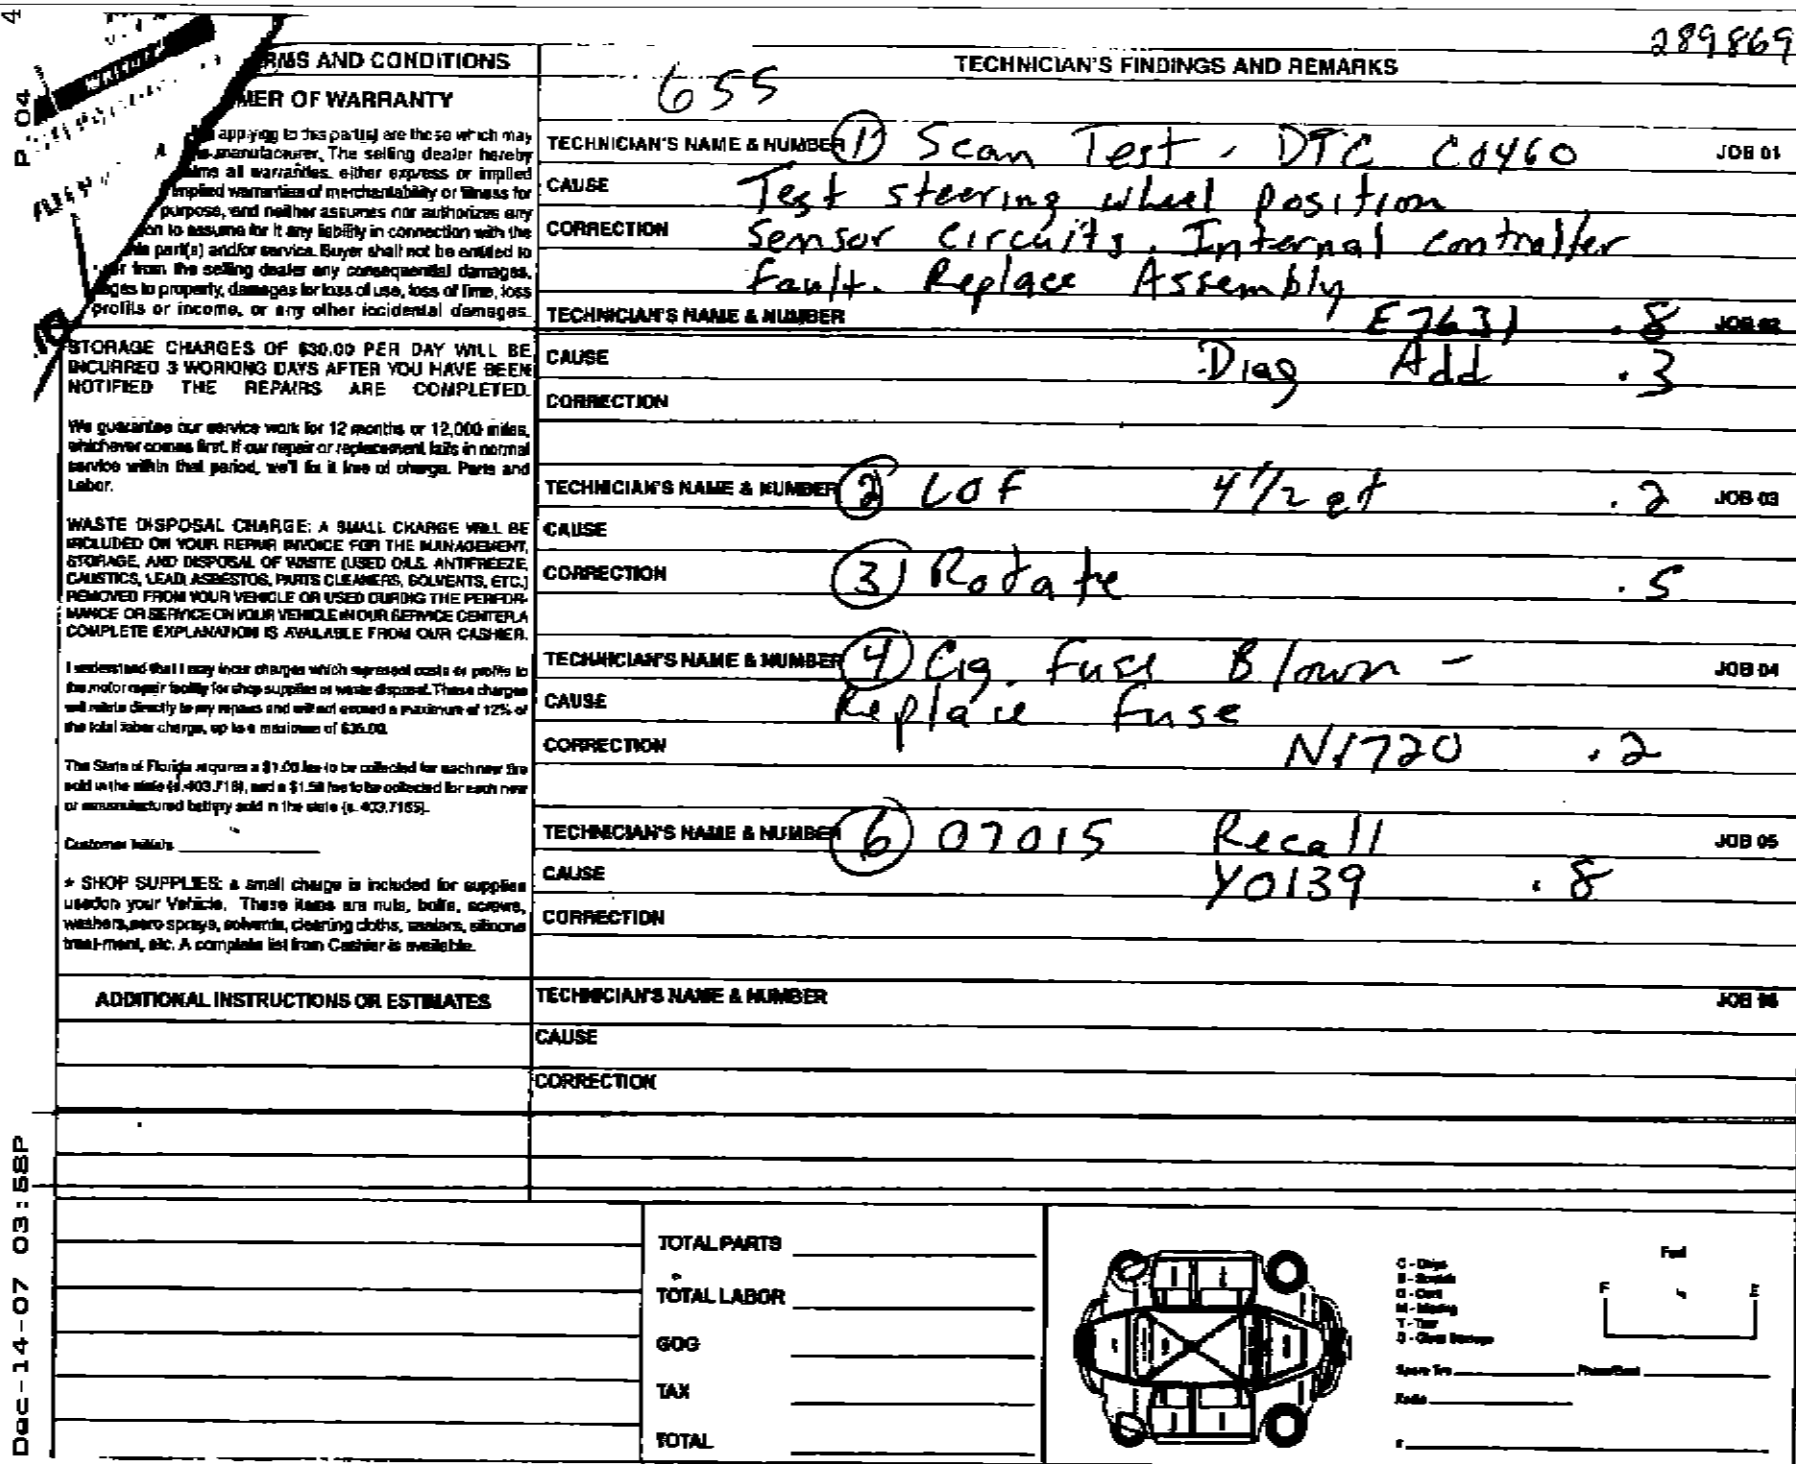 4
P 04
289869
RMS AND CONDITIONS
MER OF WARRANTY
applying to this part(s) are those which may
manufacturer, The selling dealer hereby
all warranties, either express or implied
implied warranties of merchantability or fitness for
purpose, and neither assumes nor authorizes any
on to assume for it any liability in connection with the
part(s) and/or service. Buyer shall not be entitled to
from the selling dealer any consequential damages,
ages to property, damages for loss of use, loss of time, loss
profits or income, or any other incidental damages.
STORAGE CHARGES OF $30.00 PER DAY WILL BE
INCURRED 3 WORKING DAYS AFTER YOU HAVE BEEN
NOTIFIED THE REPAIRS ARE COMPLETED.
We guarantee our service work for 12 months or 12,000 miles,
whichever comes first. If our repair or replacement fails in normal
service within that period, we'll fix it free of charge. Parts and
Labor.
WASTE DISPOSAL CHARGE: A SMALL CHARGE WILL BE
INCLUDED ON YOUR REPAIR INVOICE FOR THE MANAGEMENT,
STORAGE, AND DISPOSAL OF WASTE (USED OILS, ANTIFREEZE,
CAUSTICS, LEAD, ASBESTOS, PARTS CLEANERS, SOLVENTS, ETC.)
REMOVED FROM YOUR VEHICLE OR USED DURING THE PERFOR-
MANCE OR SERVICE ON YOUR VEHICLE IN OUR SERVICE CENTER. A
COMPLETE EXPLANATION IS AVAILABLE FROM OUR CASHIER.
I understand that I may incur charges which represent costs or profits to
the motor repair facility for shop supplies or waste disposal. These charges
will relate directly to my repairs and will not exceed a maximum of 12% of
the total labor charge, up to a maximum of $35.00.
The State of Florida requires a $1.00 fee to be collected for each new tire
sold in the state (s. 403.718), and a $1.50 fee to be collected for each new
or remanufactured battery sold in the state (s. 403.7185).
Customer Initials
* SHOP SUPPLIES: a small charge is included for supplies
used on your Vehicle. These items are nuts, bolts, screws,
washers, aero sprays, solvents, cleaning cloths, sealers, silicone
treat-ment, etc. A complete list from Cashier is available.
ADDITIONAL INSTRUCTIONS OR ESTIMATES
TECHNICIAN'S FINDINGS AND REMARKS
655
TECHNICIAN'S NAME & NUMBER 1 Scan Test. DTC C0460 JOB 01
CAUSE Test steering wheel position
CORRECTION Sensor circuits. Internal controller
fault. Replace Assembly
TECHNICIAN'S NAME & NUMBER E7631 .8 JOB 02
CAUSE Diag Add .3
CORRECTION
TECHNICIAN'S NAME & NUMBER 2 LOF 4 1/2 qt .2 JOB 03
CAUSE
CORRECTION 3 Rotate .5
TECHNICIAN'S NAME & NUMBER 4 Cig. Fuse Blown - JOB 04
CAUSE Replace Fuse
CORRECTION N1720 .2
TECHNICIAN'S NAME & NUMBER 6 07015 Recall JOB 05
CAUSE Y0139 .8
CORRECTION
TECHNICIAN'S NAME & NUMBER JOB 06
CAUSE
CORRECTION
Dec-14-07 03:58P
TOTAL PARTS
TOTAL LABOR
GOG
TAX
TOTAL
C - Chips
S - Scratch
D - Dent
M - Missing
T - Tear
Fuel
F E
Spare Tire
Radio